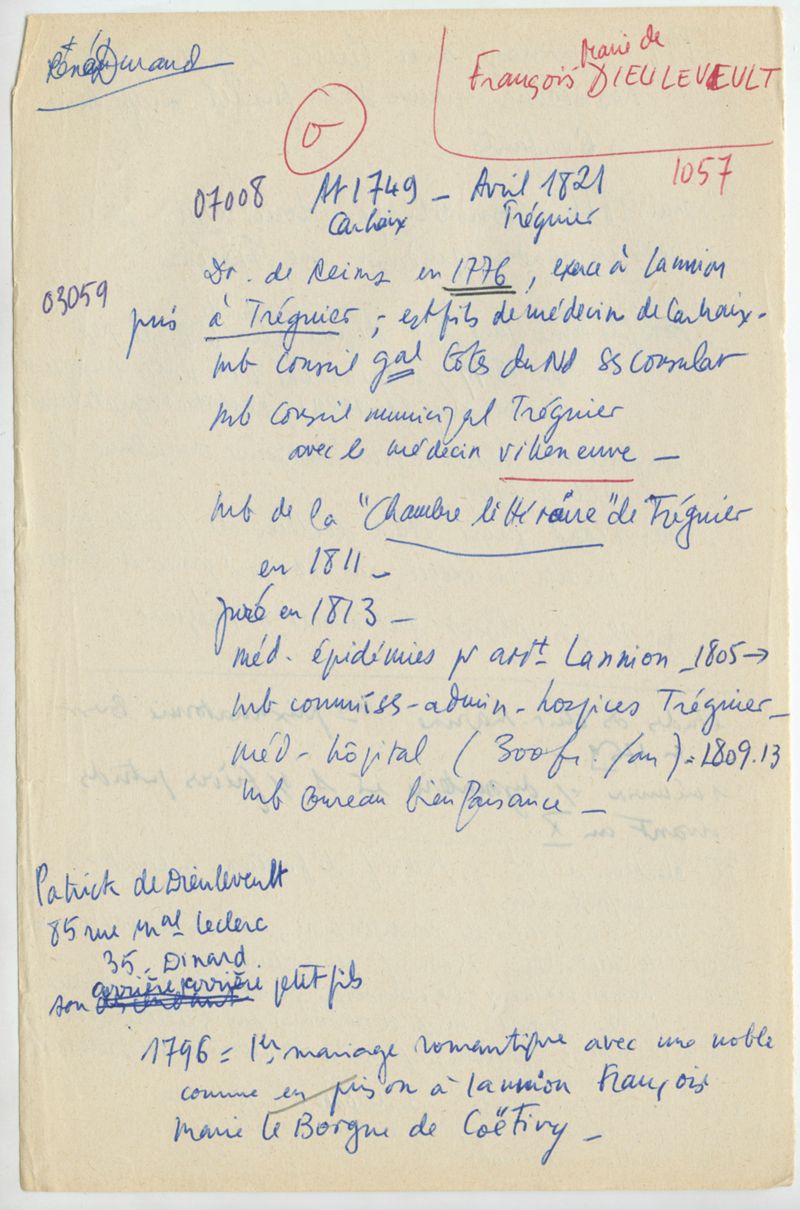 René Durand
Marie de
François DIEULEVEULT
1057
07008 1749 – Avril 1821
Carhaix Tréguier
03059
Dr. de Reims en 1776, exerce à Lannion
puis à Tréguier, est fils de médecin de Carhaix.
mb conseil gal Côtes du Nd ss consulat
mb conseil municipal Tréguier
avec le médecin villeneuve –
mb de la "Chambre littéraire" de Tréguier
en 1811 –
juré en 1813 –
méd. épidémies pr ardt Lannion – 1805 →
mb commiss-admin-hospices Tréguier –
méd-hôpital (300 fr. /an) – 1809.13
mb bureau bienfaisance –
Patrick de Dieuleveult
85 rue Mal Leclerc
35 – Dinard
arrière arrière
son petit fils
1796 = 1er mariage romantique avec une noble
connue en prison à Lannion François
Marie le Borgne de Coëtivy –